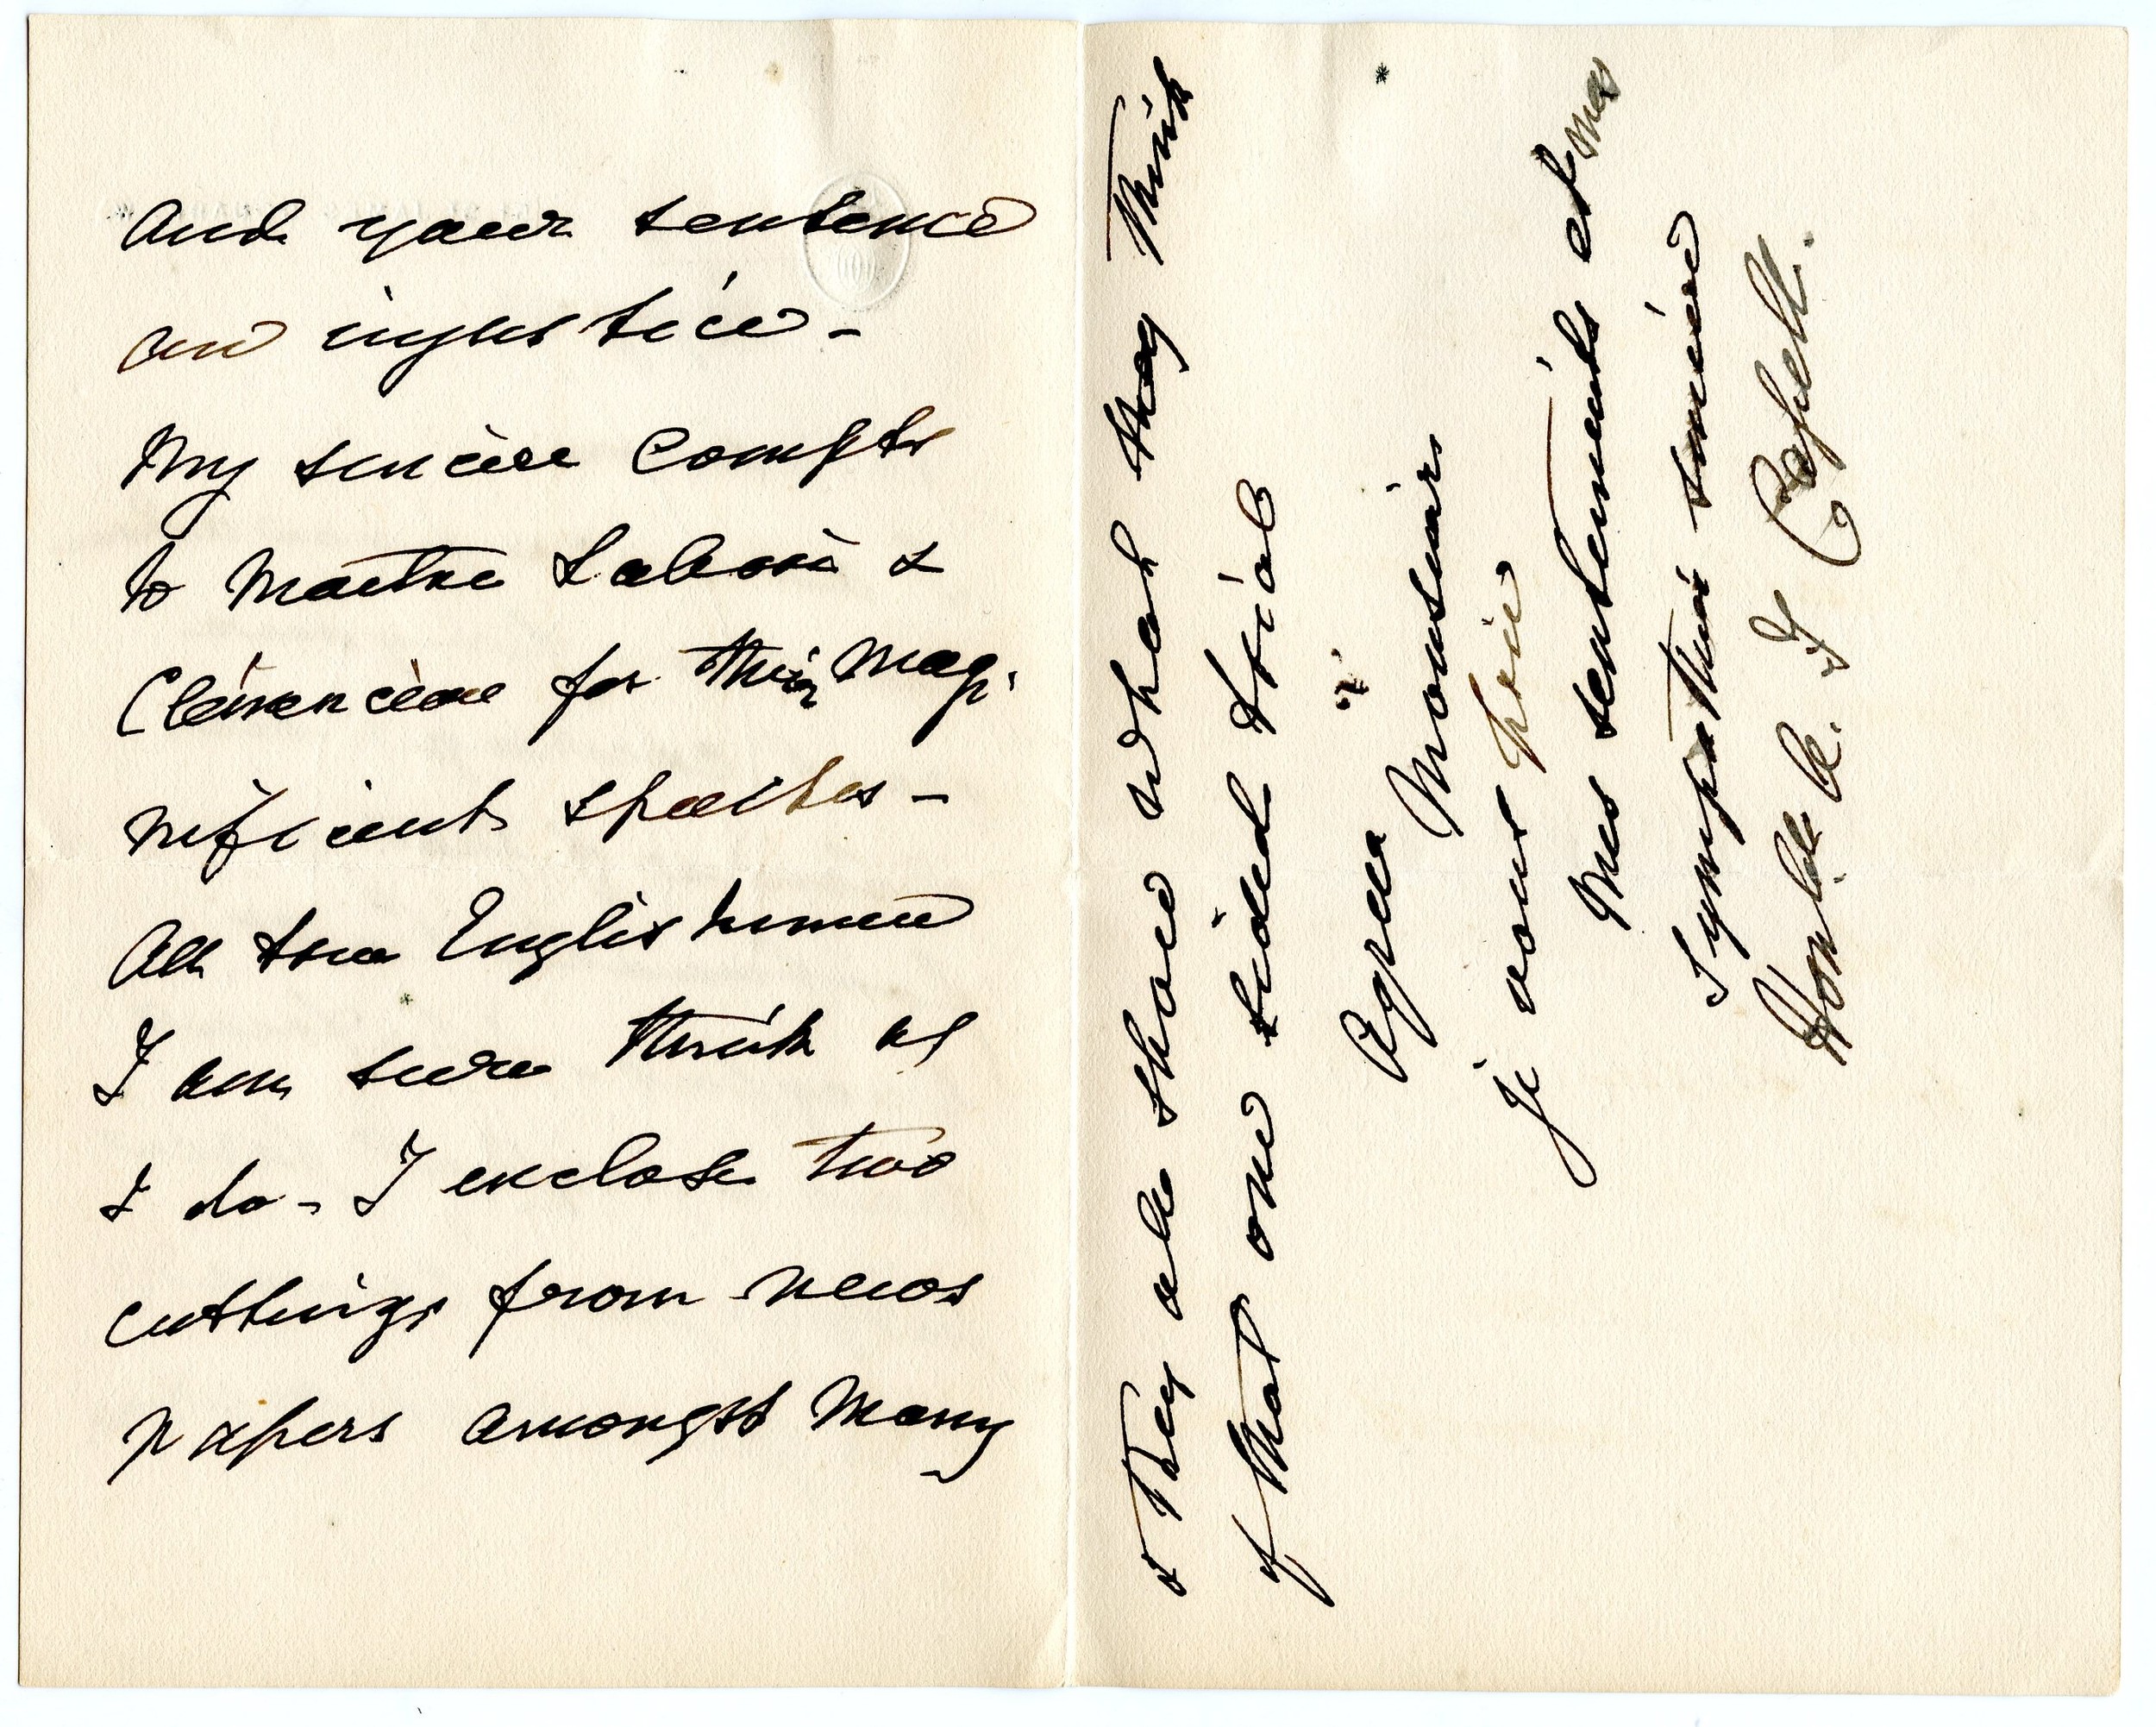 and your sentence
an injustice -
My sincere Compts
to Maitre Labori &
Clémenceau for their mag-
nificient speeches -
All true Englishmen
I am sure think as
I do - I enclose two
cuttings from news
papers amongst many
& they all share what they think
of that one sided trial
Agrea Monsieur
je vous prie
mes sentiments et mes
sympathies sinceres
Honble B. F